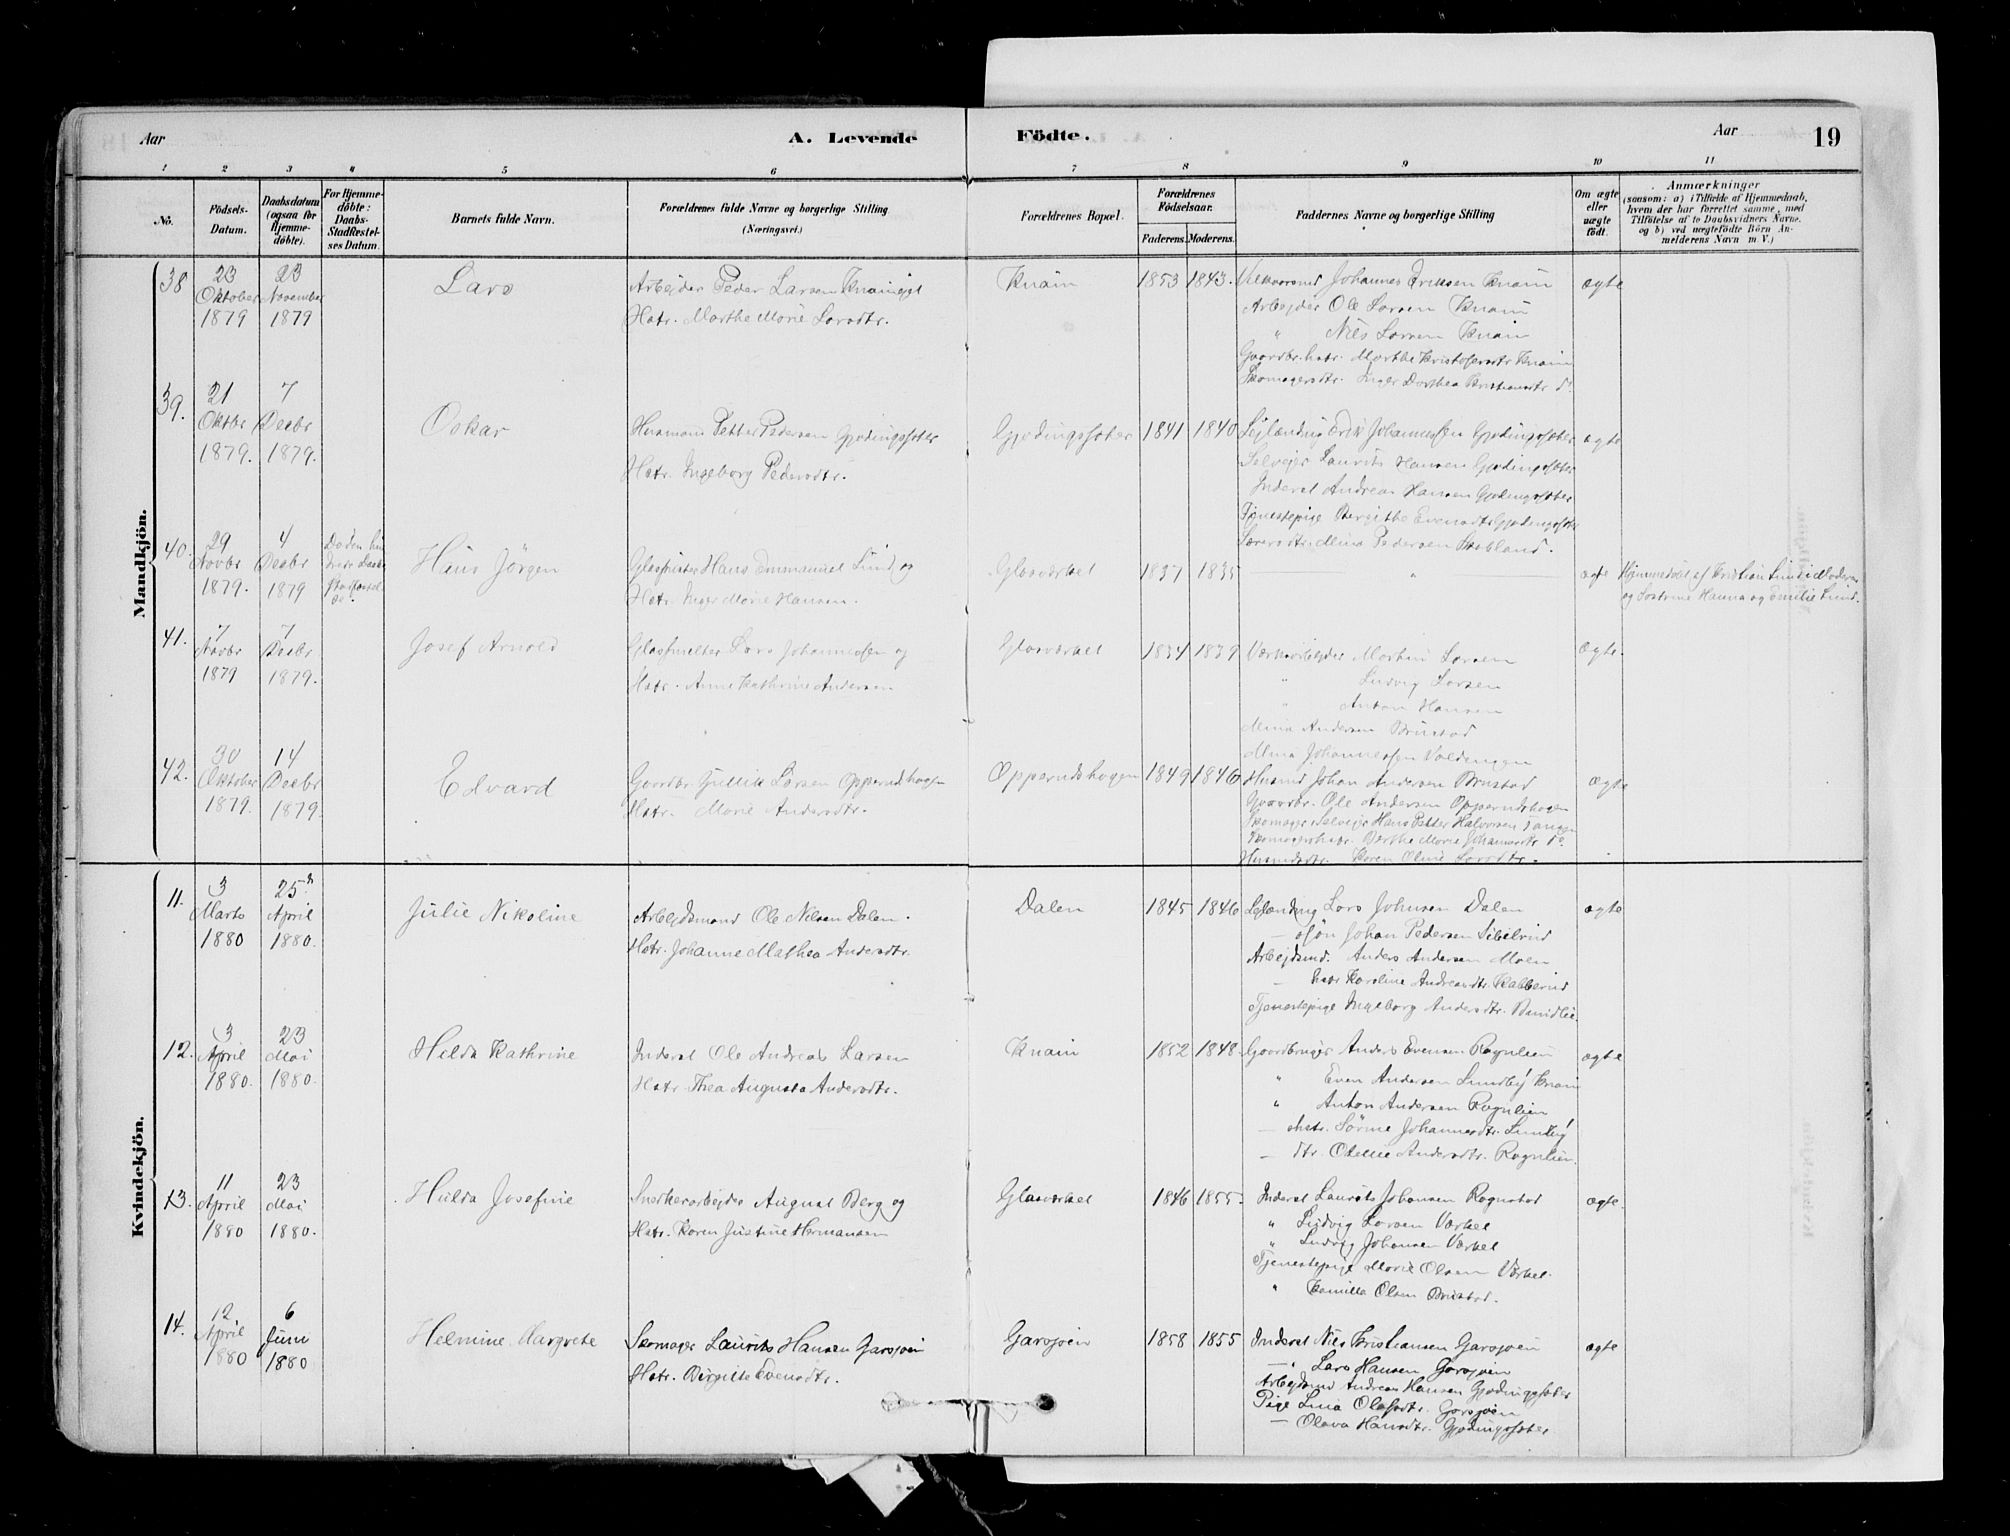 Aar
A. Levende
Födte.
Aar
19
1 2 3 4 5 6 7 8 9 10 11
No.
Födsels-
Datum.
Daabsdatum
(ogsaa for
Hjemme-
döbte).
For Hjemme-
döbte:
Daabs-
Stadfæstel-
ses Datum.
Barnets fulde Navn.
Forældrenes fulde Navne og borgerlige Stilling
(Næringsvei.)
Forældrenes Bopæl.
Forældrenes
Födselsaar.
Faderens. Moderens.
Faddernes Navne og borgerlige Stilling
Om ægte
eller
uægte
födt.
Anmærkninger
(saasom: a) i Tilfælde af Hjemmedaab,
hvem der har forrettet samme, med
Tilföielse af to Daabsvidners Navne.
og b) ved uægtefödte Börn An-
melderens Navn m V.)
Mandkjön.
38
23
Oktober
1879
23
November
1879
Lars
Arbejder Peder Larsen Knaineiet
Hstr. Marthe Marie Larsdtr.
Knain
1853 1843.
Johannes Eriksen Knain
Arbejder Ole Larsen Knain
" Nils Larsen Knain
Gaardbr. hstr. Marthe Kristofersdtr Knain
Skomagersdtr. Inger Dorthea Kristiansdtr do
ægte
39.
21
Oktbr
1879.
7
Decbr
1879.
Oskar
Husmand Petter Pedersen Gjødingssæter
Hstr. Ingeborg Pedersdtr.
Gjødingssæter
1841 1840
Lejlænding Erik Johannessen Gjødingssæter
Selvejer Laurits Hansen Gjødingssæter
Inderst Andreas Hansen Gjødingssæter
Tjenestepige Bergithe Evensdtr Gjødingssæter
Mina Pedersen Skobland.
ægte
40.
29
Novbr
1879.
4
Decbr
1879
Hans Jörgen
Glaspuster Hans Emmanuel Lund og
Hstr. Inger Marie Hansen.
Glasværket
1837 1835
"
ægte
Hjemmedöbt af Kristian Lund i Moderens
og Hanna og Emelie Lund.
41.
7
Novbr
1879
7
Decbr
1879.
Josef Arnold
Glassmelter Lars Johannessen og
Hstr. Anne Kathrine Andersen
Glasværket
1834 1839
Værksarbejder Martin Larsen
" Ludvig Larsen
" Anton Hansen
Mina Andersen Brustad
Mina Johannessen Valdengen
ægte.
42.
30
Oktober
1879.
14
Decbr
1879.
Edvard
Gaardbr. Gullik Larsen Opperudshagen
Hstr. Marie Andersdtr.
Opperudshagen
1849 1846
Husmd Johan Andersen Brustad
Gaardbr. Ole Andersen Opperudshagen
Skomager Selvejer Hans Petter Halvorsen Tangen
Skomagerhstr. Berthe Marie Johansdtr do.
Karen Oline Larsdtr.
ægte
Kvindekjön.
11.
3
Marts
1880
25
April
1880.
Julie Nikoline
Arbejdsmand Ole Nilsen Dalen.
Hstr. Johanne Mathea Andersdtr.
Dalen
1845 1846
Lejlænding Lars Johnsen Dalen
— sön Johan Pedersen Sibilrud
Arbejdsmd. Anders Andersen Moen
— hstr Karoline Andreasdtr. Kabberud
Tjenestepige Ingeborg Andersdtr. Bundlie.
ægte
12.
3
April
1880.
23
Mai
1880.
Helda Kathrine
Inderst Ole Andreas Larsen
Hstr. Thea Augusta Andersdtr.
Knain
1852 1848.
Gaardbruger Anders Evensen Rognlien
" Even Andersen Lundby Knain
" Anton Andersen Rognlien
— hstr. Sörine Johannesdtr. Lundby
— dtr. Otellie Andersdtr. Rognlien.
ægte
13.
11
April
1880
23
Mai
1880.
Hulda Josefine
Snekerarbejder August Berg og
Hstr. Karen Justine Hermansen
Glasværket
1846 1855.
Inderst Laurits Johansen Rognstad
" Ludvig Larsen Værket
" Ludvig Johansen Værket
Tjenestepige Marie Olsen Værket.
" Kamilla Olsen Brustad.
ægte.
14.
12
April
1880
6
Juni
1880
Helmine Margrete
Skomager Laurits Hansen Garsjøen
Hstr. Birgitte Evensdtr.
Garsjøen
1858 1855
Inderst Nils Kristiansen Garsjøen
— " Lars Hansen Garsjøen
Arbejdsmd Andreas Hansen Gjødingssæter
Pige Lina Olafsdtr. Garsjøen
— Olava Hansdtr. Gjødingssæter
ægte